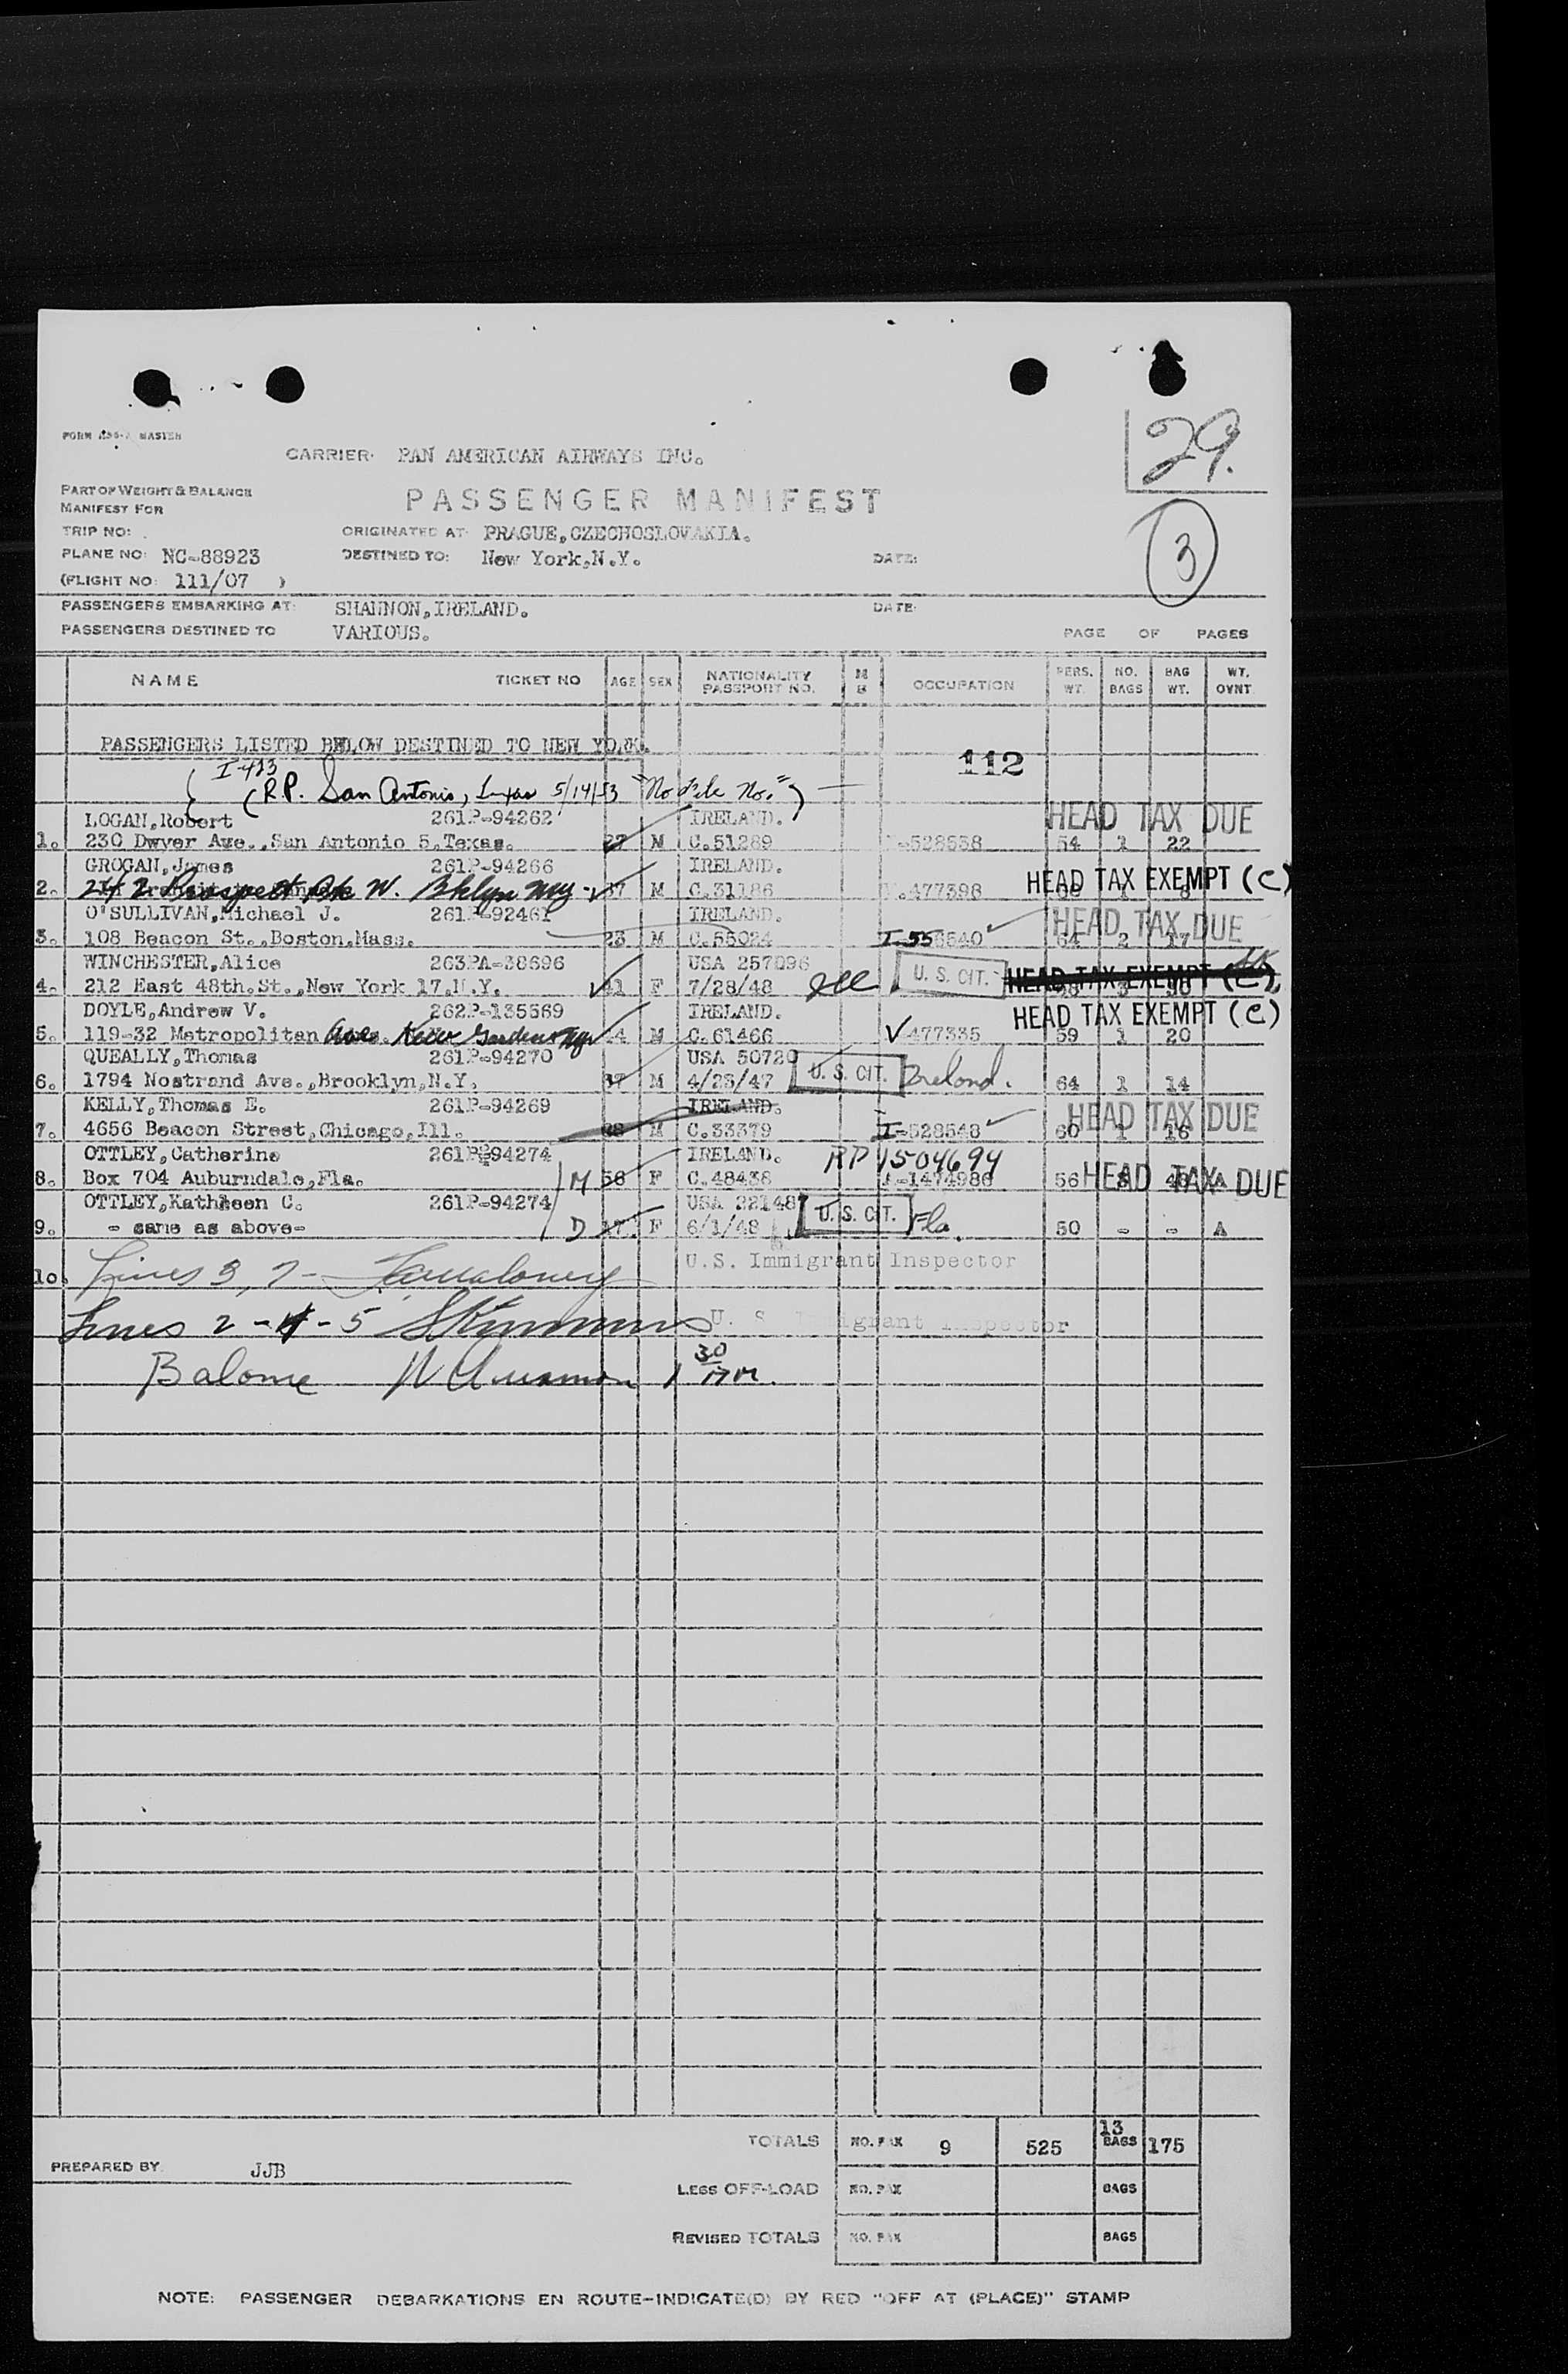 29.
FORM MASTER
CARRIER: PAN AMERICAN AIRWAYS INC.
PART OF WEIGHT & BALANCE
MANIFEST FOR
PASSENGER MANIFEST
3
TRIP NO:
ORIGINATED AT: PRAGUE,CZECHOSLOVAKIA.
PLANE NO: NC-88923
DESTINED TO: New York,N.Y.
DATE:
(FLIGHT NO: 111/07 )
PASSENGERS EMBARKING AT: SHANNON,IRELAND.
DATE:
PASSENGERS DESTINED TO VARIOUS.
PAGE OF PAGES
NAME TICKET NO AGE SEX NATIONALITY PASSPORT NO. OCCUPATION PERS. WT. NO. BAGS BAG WT. WT. OVNT
PASSENGERS LISTED BELOW DESTINED TO NEW YORK.
112
I-423
(R.P. San Antonio, Texas 5/14/53 "No File No.")
LOGAN,Robert 261P-94262 IRELAND. HEAD TAX DUE
1. 230 Dwyer Ave.,San Antonio 5,Texas. 27 M C.51289 528538 54 1 22
GROGAN,James 261P-94266 IRELAND. HEAD TAX EXEMPT (C)
2. Prospect Pk W. Bklyn NY 37 M C.31186 477398
O'SULLIVAN,Michael J. 261P-92461 IRELAND. HEAD TAX DUE
3. 108 Beacon St.,Boston,Mass. 23 M C.55024 64 2 17
WINCHESTER,Alice 263PA-38696 USA 257096 U. S. CIT. HEAD TAX EXEMPT (C)
4. 212 East 48th.St.,New York 17,N.Y. 41 F 7/28/48
DOYLE,Andrew V. 262P-135569 IRELAND. HEAD TAX EXEMPT (C)
5. 119-32 Metropolitan Ave. Kew Gardens NY 44 M C.61466 477335 59 1 20
QUEALLY,Thomas 261P-94270 USA 50720 U. S. CIT. Ireland.
6. 1794 Nostrand Ave.,Brooklyn,N.Y. 37 M 4/23/47 64 1 14
KELLY,Thomas E. 261P-94269 IRELAND. HEAD TAX DUE
7. 4656 Beacon Street,Chicago,Ill. M C.33379 I-528548 60 1 16
OTTLEY,Catherine 261P-94274 IRELAND. RP 1504694
8. Box 704 Auburndale,Fla. M 56 F C.48438 1474986 56 HEAD TAX DUE
OTTLEY,Kathleen C. 261P-94274 USA 22148 U. S. CIT. Fla.
9. - same as above- D 17 F 6/1/48 50 - - A
10. Lines 3, 7 - U.S. Immigrant Inspector
Lines 2 - 4 - 5 U. S. Immigrant Inspector
Balance 1 30
TOTALS NO. PAX 9 525 13 BAGS 175
PREPARED BY JJB
LESS OFF-LOAD NO. PAX BAGS
REVISED TOTALS NO. PAX BAGS
NOTE: PASSENGER DEBARKATIONS EN ROUTE-INDICATE(D) BY RED "OFF AT (PLACE)" STAMP